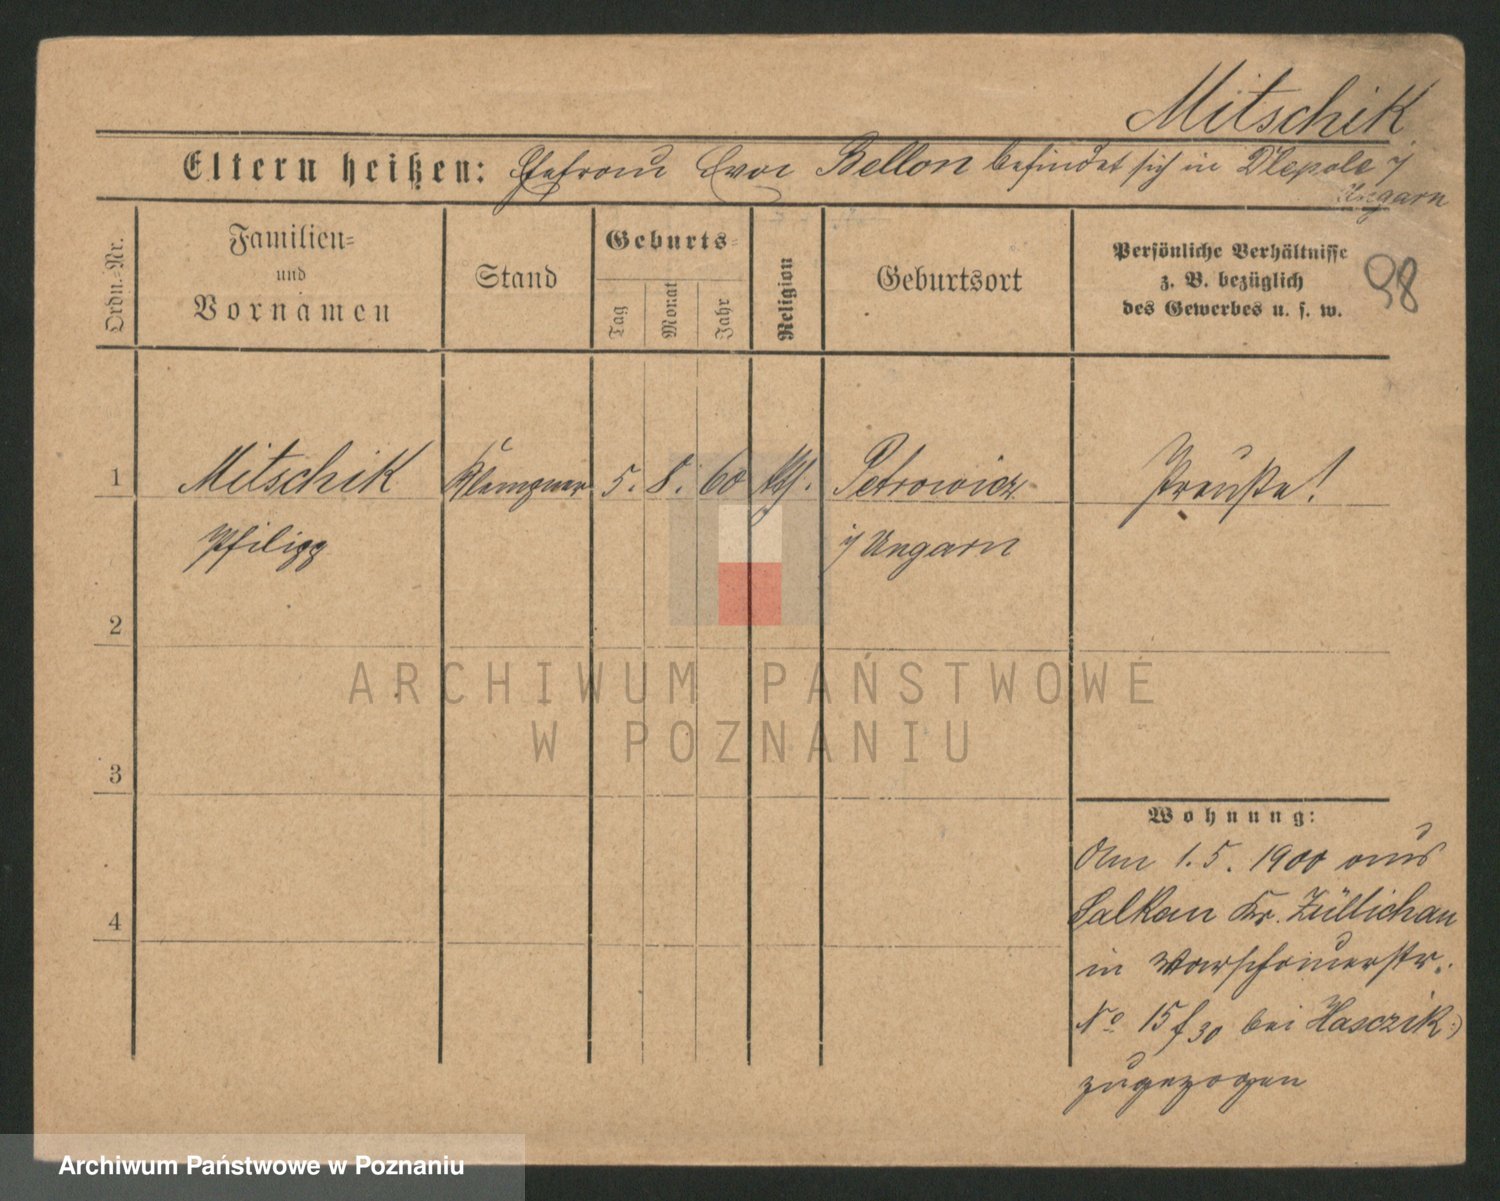 Mitschik
Eltern heißen: Ehefrau Eva Bellon befindet sich in D'lepole i/
Ungarn
Ordn.=Nr.
Familien=
und
Vornamen
Stand
Geburts=
Tag
Monat
Jahr
Religion
Geburtsort
Persönliche Verhältnisse
z. B. bezüglich
des Gewerbes u. s. w.
98
1 Mitschik Klempner 5. 8. 60 kth. Petrowicz Preuße!
Philipp i/ Ungarn
2
3
4
Wohnung:
Am 1. 5. 1900 aus
Salkau Kr. Züllichau
in Warschauerstr.
No 15 f 30 bei Hasczik
zugezogen
ARCHIWUM PAŃSTWOWE
W POZNANIU
Archiwum Państwowe w Poznaniu